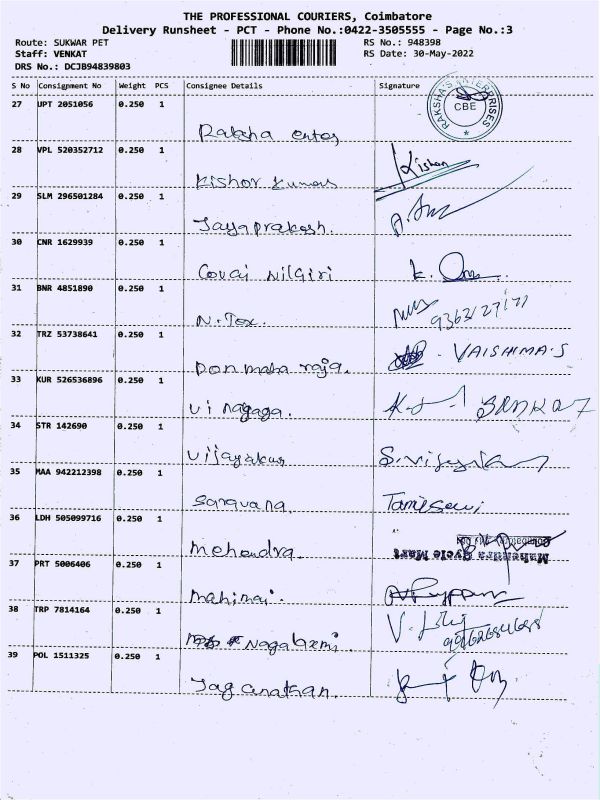 THE PROFESSIONAL COURIERS, Coimbatore
Delivery Runsheet - PCT - Phone No.:0422-3505555 - Page No.:3
Route: SUKWAR PET RS No.: 948398
Staff: VENKAT RS Date: 30-May-2022
DRS No.: DCJB94839803
S No Consignment No Weight PCS Consignee Details Signature
27 UPT 2051056 0.250 1
RAKSHA'S ENTERPRISES CBE
Raksha enter
28 VPL 520352712 0.250 1
Kishor Kumar Kishor
29 SLM 296501284 0.250 1
Jayaprakash.
30 CNR 1629939 0.250 1
Covai Nilgiri
31 BNR 4851890 0.250 1
N. Tex.
32 TRZ 53738641 0.250 1
Pon maha raja. VAISHIMA.S
33 KUR 526536896 0.250 1
Vinagaga.
34 STR 142690 0.250 1
Vijayakur S.Vijayaku
35 MAA 942212398 0.250 1
Saravana Tamilselvi
36 LDH 505099716 0.250 1
Mehendra. Mahendra Cycle Mart
37 PRT 5006406 0.250 1
Mahimai.
38 TRP 7814164 0.250 1
Nagalaxmi.
39 POL 1511325 0.250 1
Jaganathan.